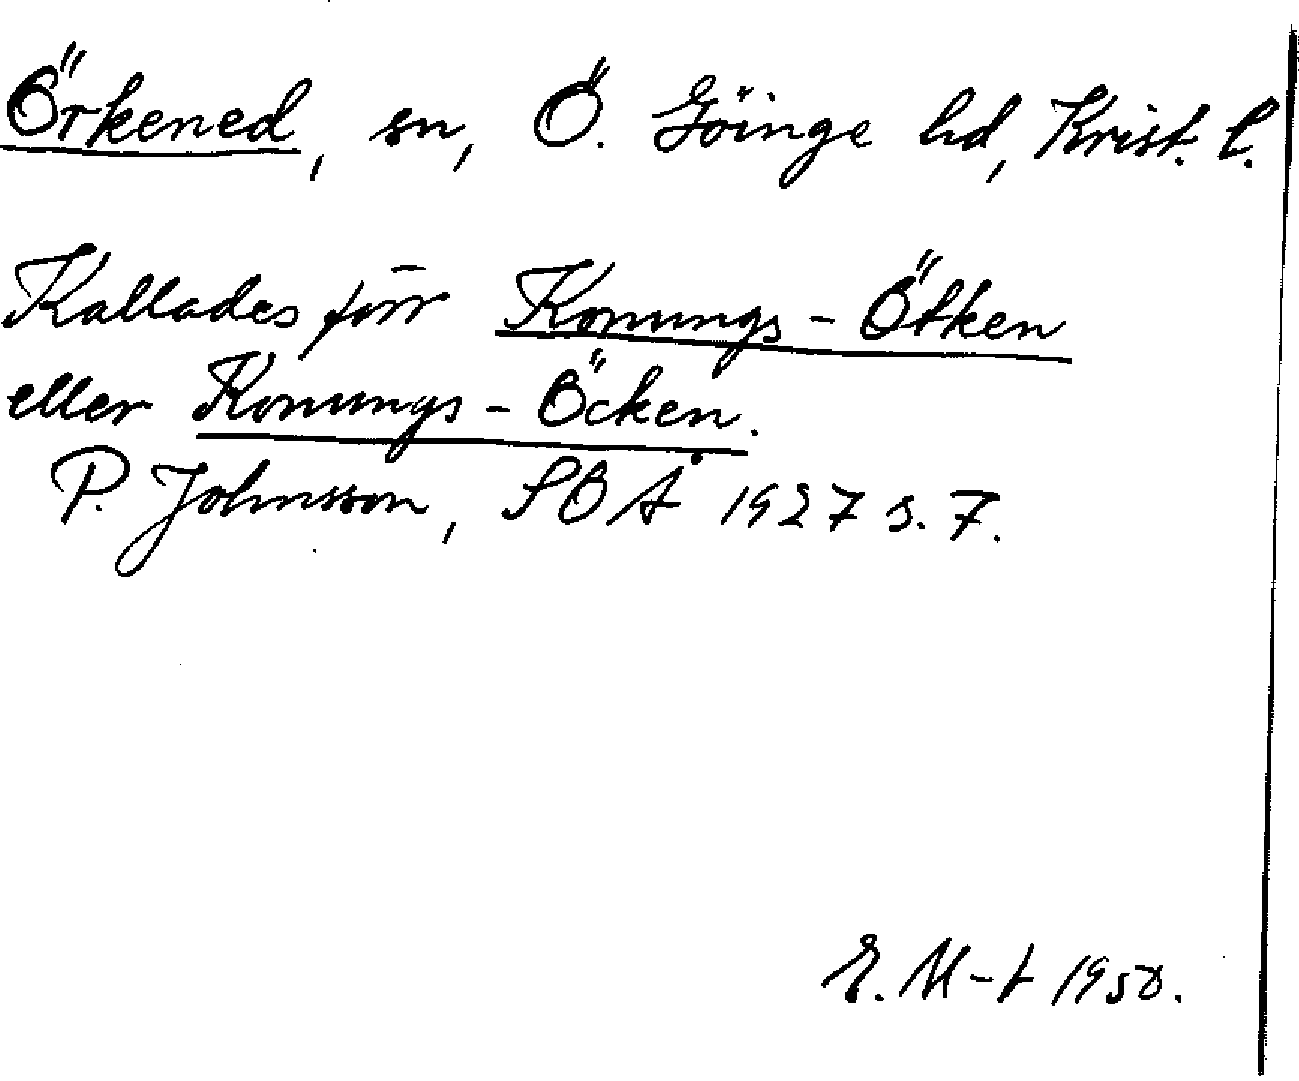 Örkened, sn, Ö. Göinge hd, Krist. l.
Kallades förr Konungs-Ötken
eller Konungs-Öcken.
P. Johnsson, SBÅ 1927 s. 7.
E. M-t 1950.